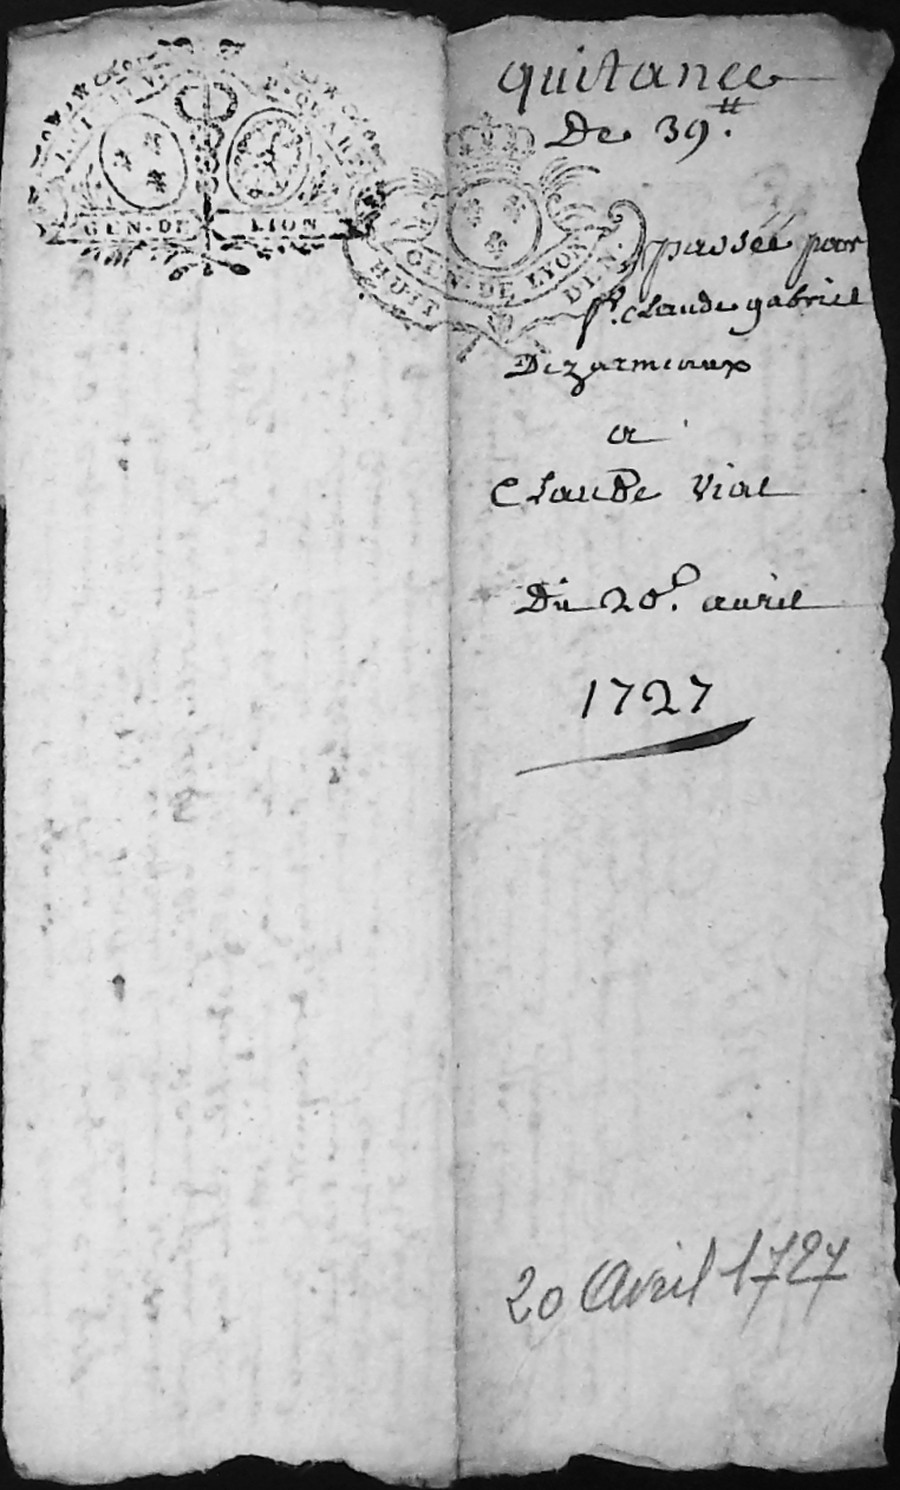 GEN·DE LION
GEN·DE LYON
HUIT DEN.
quitance
De 39.#
passée par
sr. claude gabriel
Dezarmeaux
a
Claude Vial
Du 20e. auril
1727
20 Avril 1727